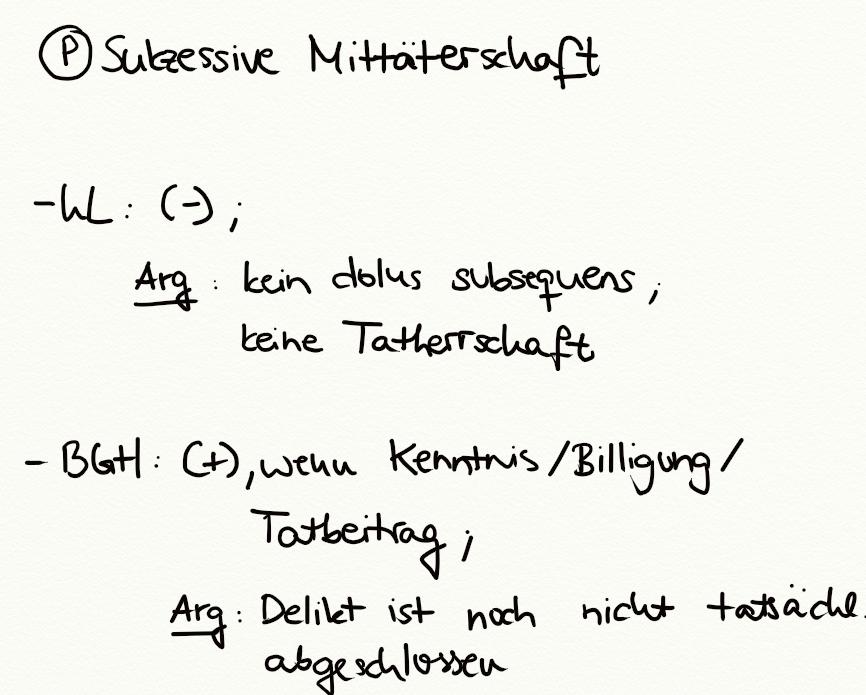 Ⓟ Sukzessive Mittäterschaft
- hL: (-);
Arg: kein dolus subsequens;
keine Tatherrschaft
- BGH: (+), wenn Kenntnis/Billigung/
Tatbeitrag;
Arg: Delikt ist noch nicht tatsächl.
abgeschlossen